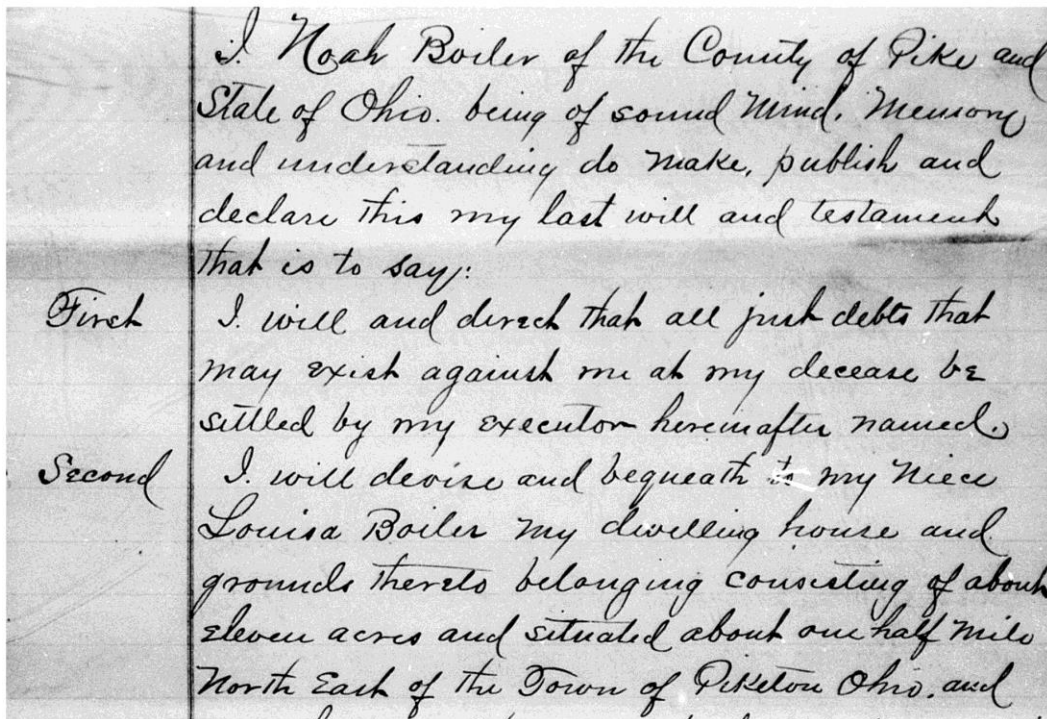 I. Noah Boiler of the County of Pike and
State of Ohio. being of sound Mind. Memory
and understanding do make, publish and
declare this my last will and testament
that is to say:
First I. will and direct that all just debts that
may exist against me at my decease be
sittled by my executor hereinafter named.
Second I. will devise and bequeath to my Niece
Louisa Boiler my dwelling house and
grounds thereto belonging consisting of about
eleven acres and situated about one half Mile
North East of the Town of Piketon Ohio. and